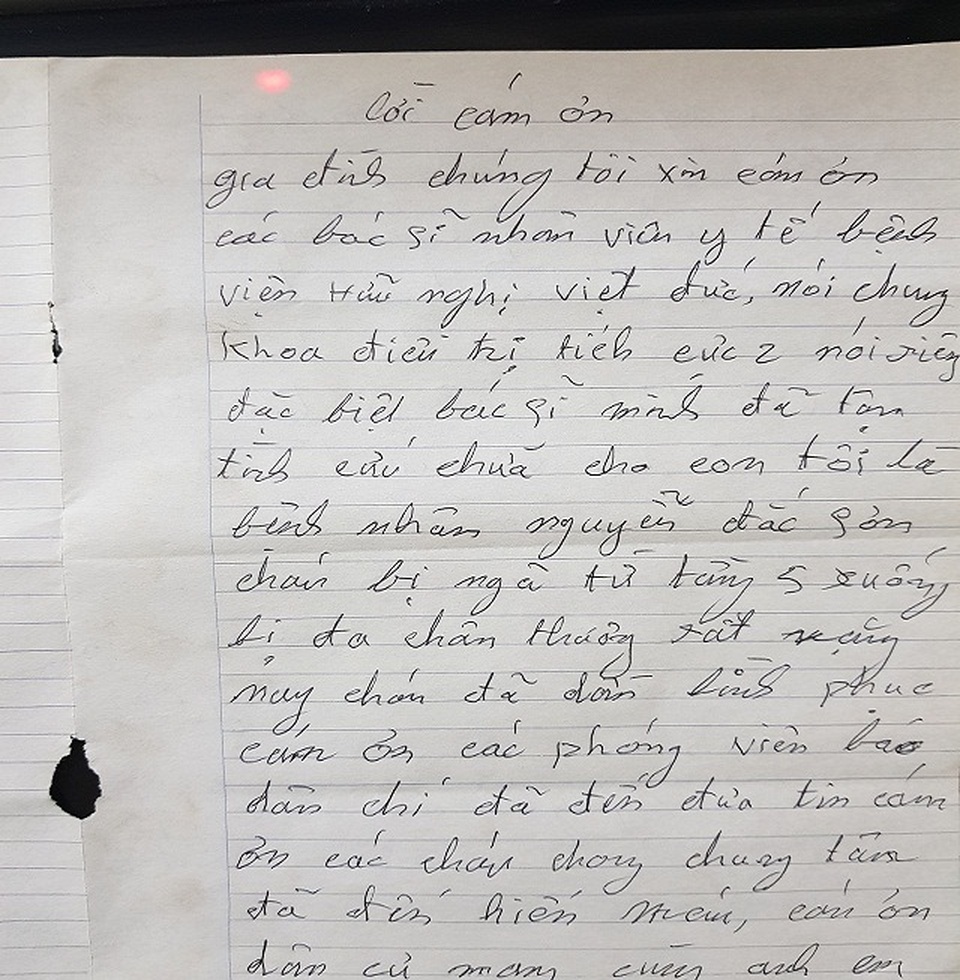 lời cám ơn
gia đình chúng tôi xin cám ơn
các bác sĩ nhân viên y tế bệnh
viện Hữu nghị việt đức, nói chung
khoa điều trị tích cực 2 nói riêng
đặc biệt bác sĩ mình đã tận
tình cứu chữa cho con tôi là
bệnh nhân nguyễn đắc sơn
cháu bị ngã từ tầng 5 xuống
bị đa chấn thương rất nặng
nay cháu đã dần bình phục
cám ơn các phóng viên báo
dân chí đã đến đưa tin cám
ơn các cháu chong chung tâm
đã đến hiến máu, cám ơn
dân cư mạng cùng anh em